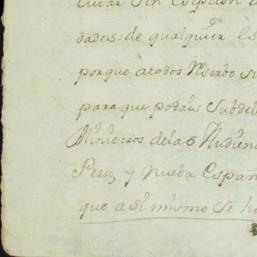 sin esepcion
dades de qualquier es
porque a todos
para que podais Subdel
Ministros de las Audien
Peru, y nueva Españ
que asi mismo se h